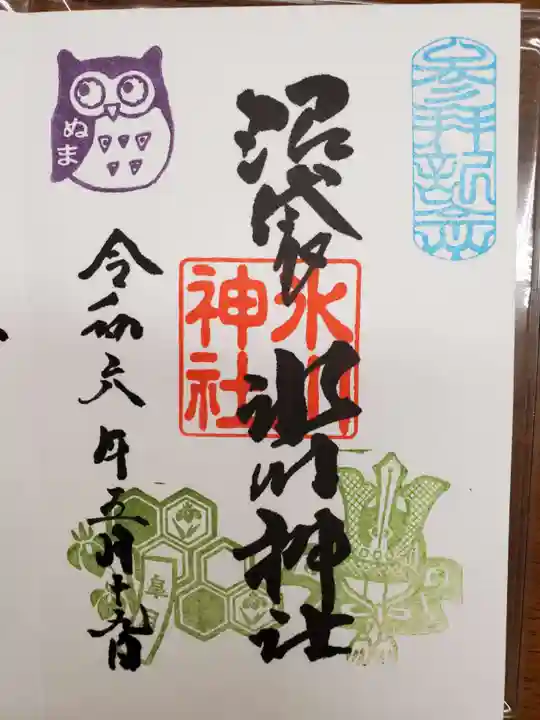 参拝記念
沼袋氷川神社
氷川神社
ぬま
令和六年五月十九日